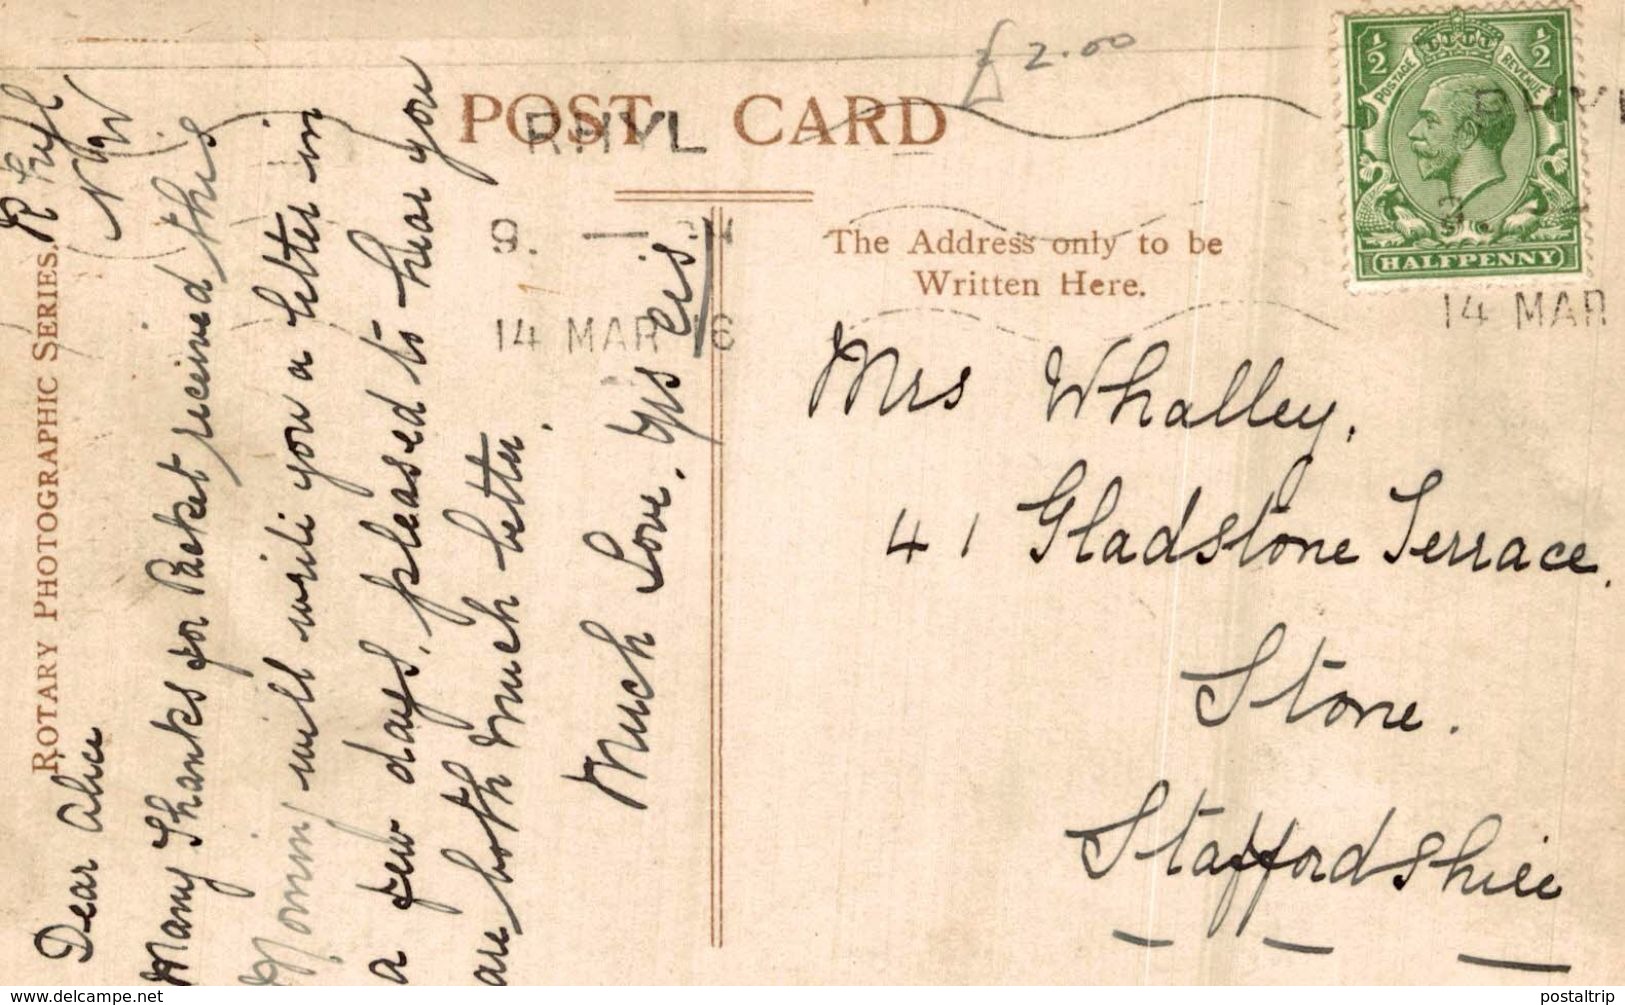 £2.00
POST CARD
RHYL
9. —
14 MAR 16
14 MAR
½ ½
POSTAGE REVENUE
HALFPENNY
The Address only to be
Written Here.
ROTARY PHOTOGRAPHIC SERIES.
Rhyl
N W
Dear Alice
Many Thanks for Packet received this
Morning will write you a letter in
a few days, pleased to hear you
are both much better.
Much Love. Yrs Cis
Mrs Whalley,
41 Gladstone Terrace.
Stone.
Staffordshire
delcampe.net
postaltrip